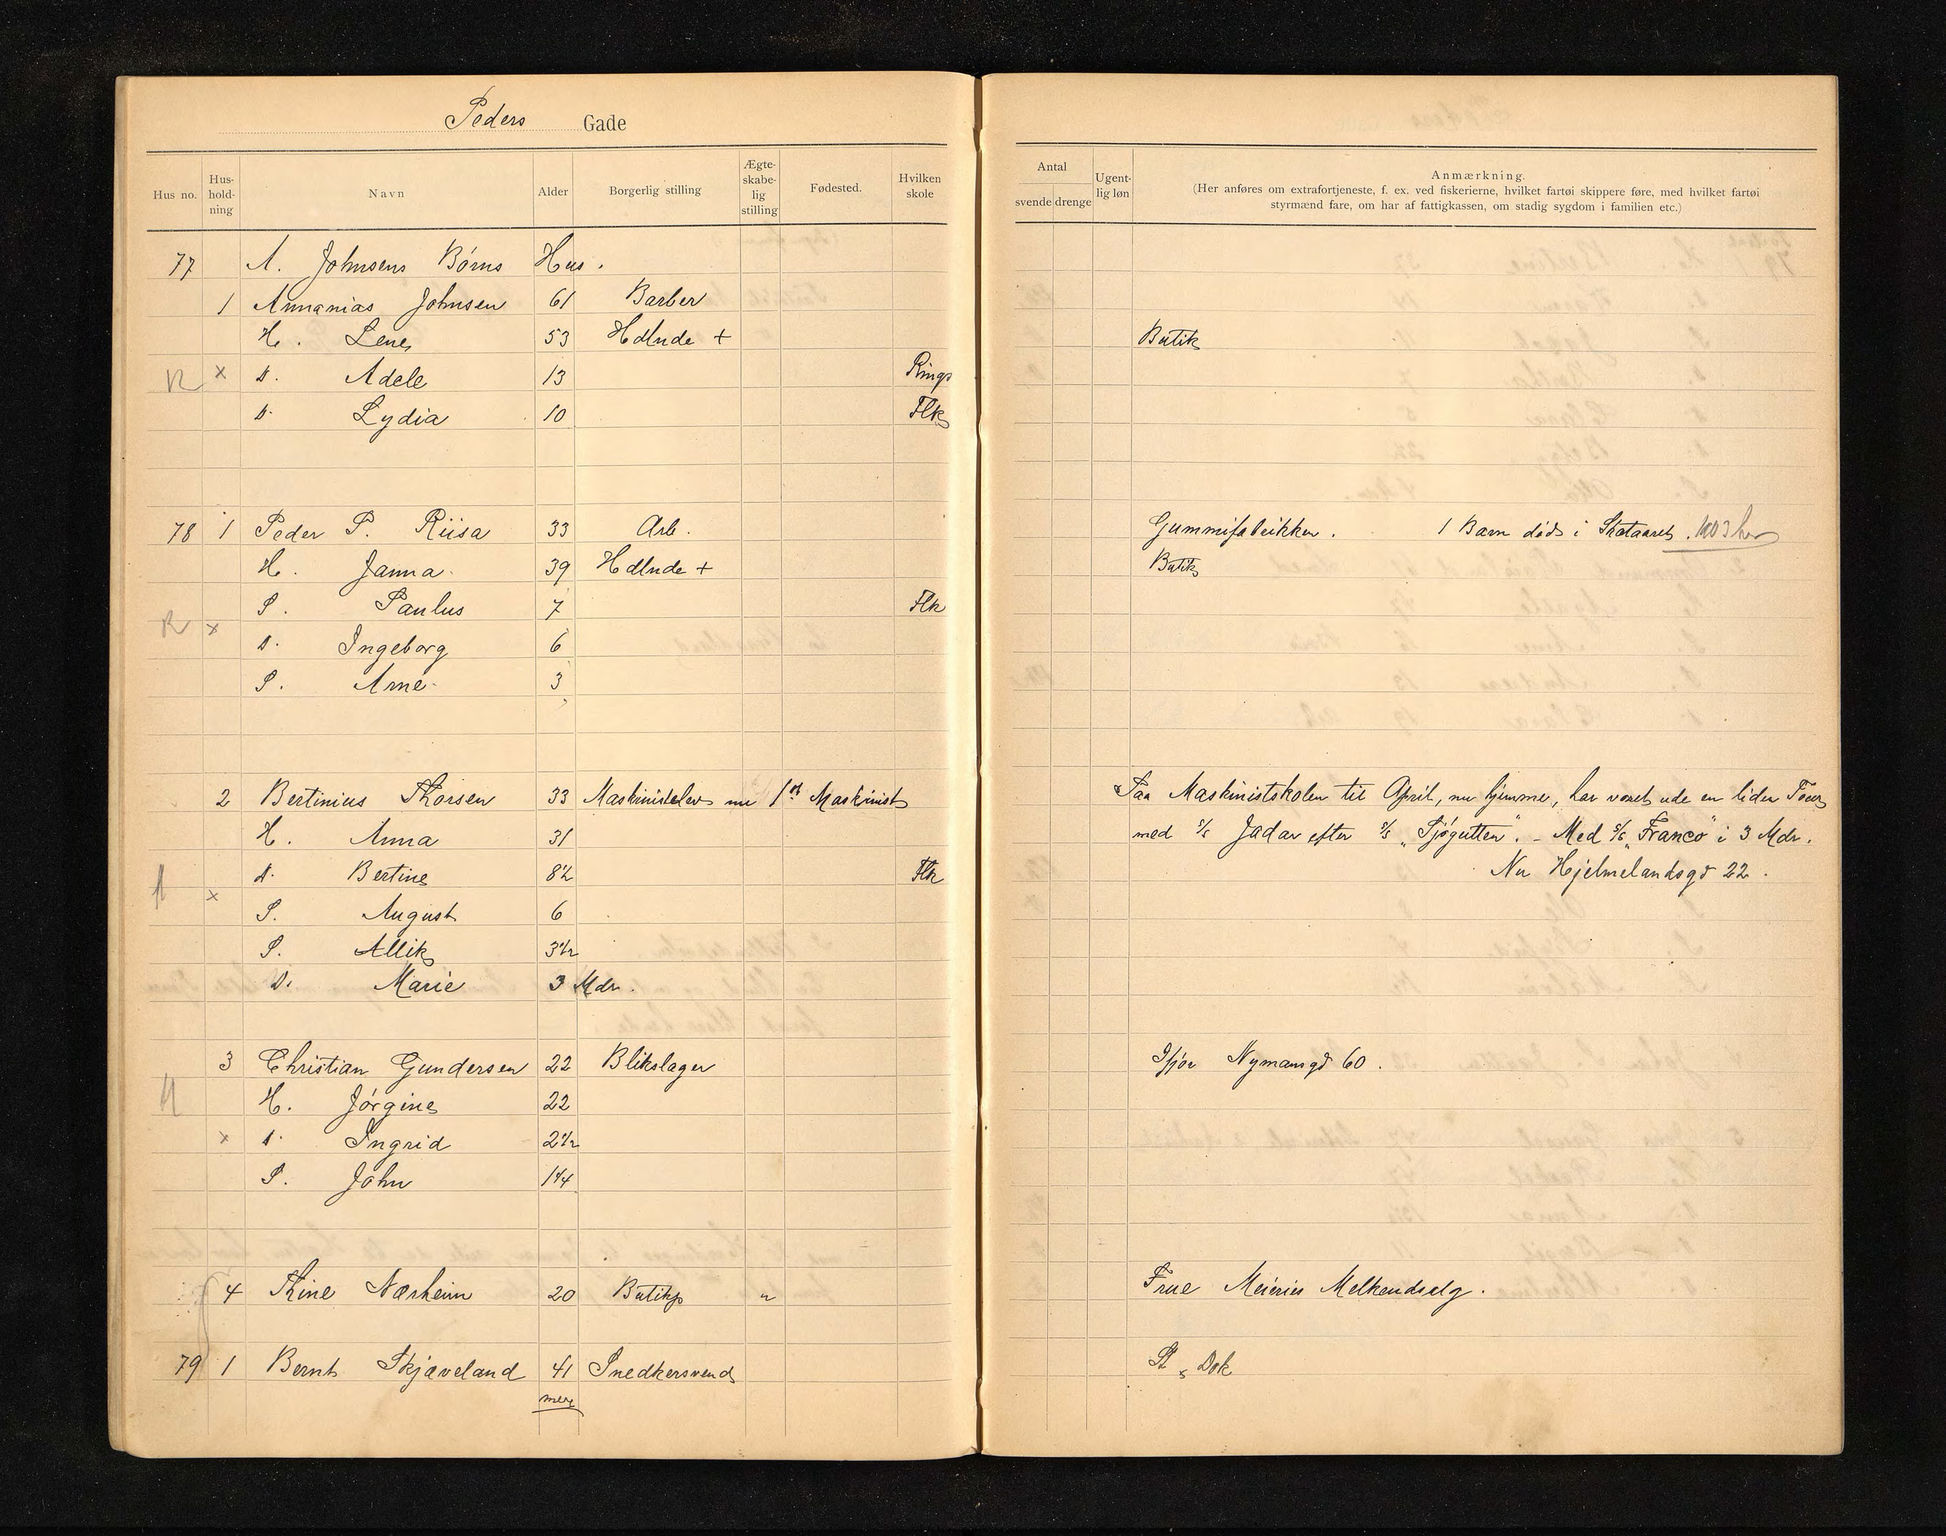 Peders Gade
Hus no. Hus-hold-ning Navn Alder Borgerlig stilling Ægte-skabe-lig stilling Fødested. Hvilken skole
77 A. Johnsens Børns Hus.
1 Annanias Johnsen 61 Barber
H. Lene 53 Hdlnde +
R x D. Adele 13 Rings
D. Lydia 10 Flk
78 1 Peder P. Riisa 33 Arb.
H. Janna 39 Hdlnde +
S. Paulus 7 Flk
R x D. Ingeborg 6
S. Arne 3
2 Bertinius Thorsen 33 Maskinistelev nu 1st Maskinist
H. Anna 31
x D. Bertine 8½ Flk
S. August 6
S. Allik 3½
D. Marie 3 Mdr.
3 Christian Gundersen 22 Blikslager
H. Jørgine 22
x D. Ingrid 2½
S. John 1¼
4 Thine Nærheim 20 Butikp "
79 1 Bernt Skjæveland 41 Snedkersvend
mere
Antal svende drenge Ugent-lig løn Anmærkning.
(Her anføres om extrafortjeneste, f. ex. ved fiskerierne, hvilket fartøi skippere føre, med hvilket fartøi
styrmænd fare, om har af fattigkassen, om stadig sygdom i familien etc.)
Butik
Gummifabrikken. 1 Barn døds i Skataaret.
Butik
Paa Maskinistskolen til April, nu hjemme, har været ude en liden Tour
med s/s Jadar efter s/s „Sjøgutten". - Med s/s „Franco" i 3 Mdr.
Nu Hjelmelandsgd 22.
Ifjor Nymansgd 60.
Frue Meieries Melkeudsalg.
St. Dok